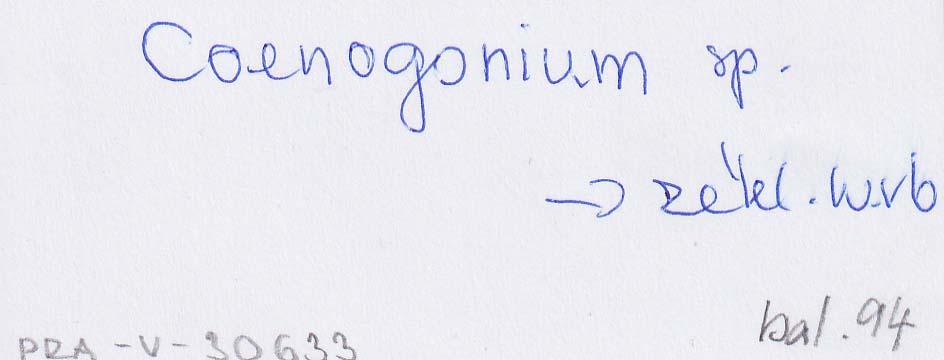 Coenogonium sp.
→ zákl. urb
bal. 94
PRA-V-30633